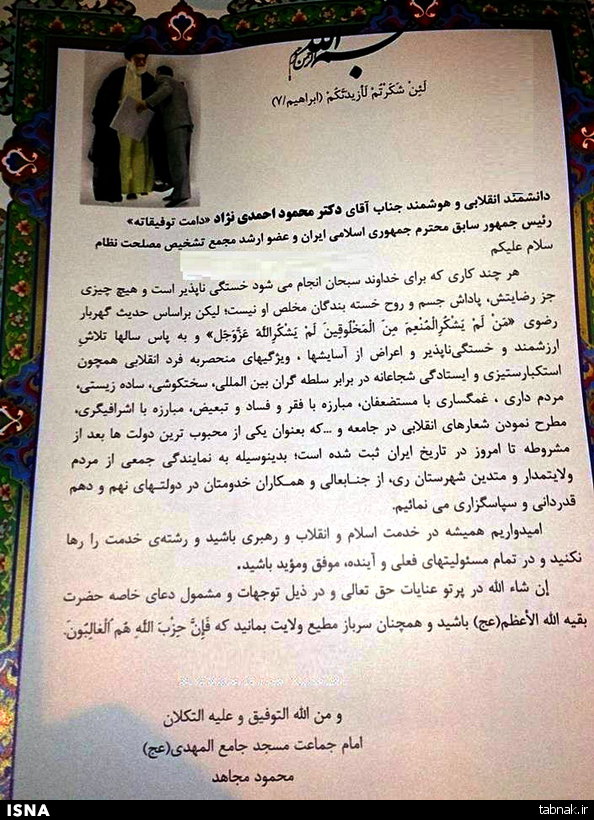 بسم الله الرحمن الرحیم
لَئِنْ شَکَرْتُمْ لَأَزِیدَنَّکُمْ (ابراهیم/۷)
دانشمند انقلابی و هوشمند جناب آقای دکتر محمود احمدی نژاد «دامت توفیقاته»
رئیس جمهور سابق محترم جمهوری اسلامی ایران و عضو ارشد مجمع تشخیص مصلحت نظام
سلام علیکم
هر چند کاری که برای خداوند سبحان انجام می شود خستگی ناپذیر است و هیچ چیزی
جز رضایتش، پاداش جسم و روح خسته بندگان مخلص او نیست؛ لیکن براساس حدیث گهربار
رضوی «مَنْ لَمْ یَشْکُرِالْمُنْعِمَ مِنَ الْمَخْلُوقِینَ لَمْ یَشْکُرِاللهَ عَزَّوَجَل» و به پاس سالها تلاشِ
ارزشمند و خستگی‌ناپذیر و اعراض از آسایشها ، ویژگیهای منحصربه فرد انقلابی همچون
استکبارستیزی و ایستادگی شجاعانه در برابر سلطه گران بین المللی، سختکوشی، ساده زیستی،
مردم داری ، غمگساری با مستضعفان، مبارزه با فقر و فساد و تبعیض، مبارزه با اشرافیگری،
مطرح نمودن شعارهای انقلابی در جامعه و ...که بعنوان یکی از محبوب ترین دولت ها بعد از
مشروطه تا امروز در تاریخ ایران ثبت شده است؛ بدینوسیله به نمایندگی جمعی از مردم
ولایتمدار و متدین شهرستان ری، از جنابعالی و همکاران خدومتان در دولتهای نهم و دهم
قدردانی و سپاسگزاری می نمائیم.
امیدواریم همیشه در خدمت اسلام و انقلاب و رهبری باشید و رشته‌ی خدمت را رها
نکنید و در تمام مسئولیتهای فعلی و آینده، موفق ومؤید باشید.
إن شاء الله در پرتو عنایات حق تعالی و در ذیل توجهات و مشمول دعای خاصه حضرت
بقیه الله الأعظم(عج) باشید و همچنان سرباز مطیع ولایت بمانید که فَإِنَّ حِزْبَ اللهِ هُم ُالغالِبُونَ.
و من الله التوفیق و علیه التکلان
امام جماعت مسجد جامع المهدی(عج)
محمود مجاهد
ISNA
tabnak.ir